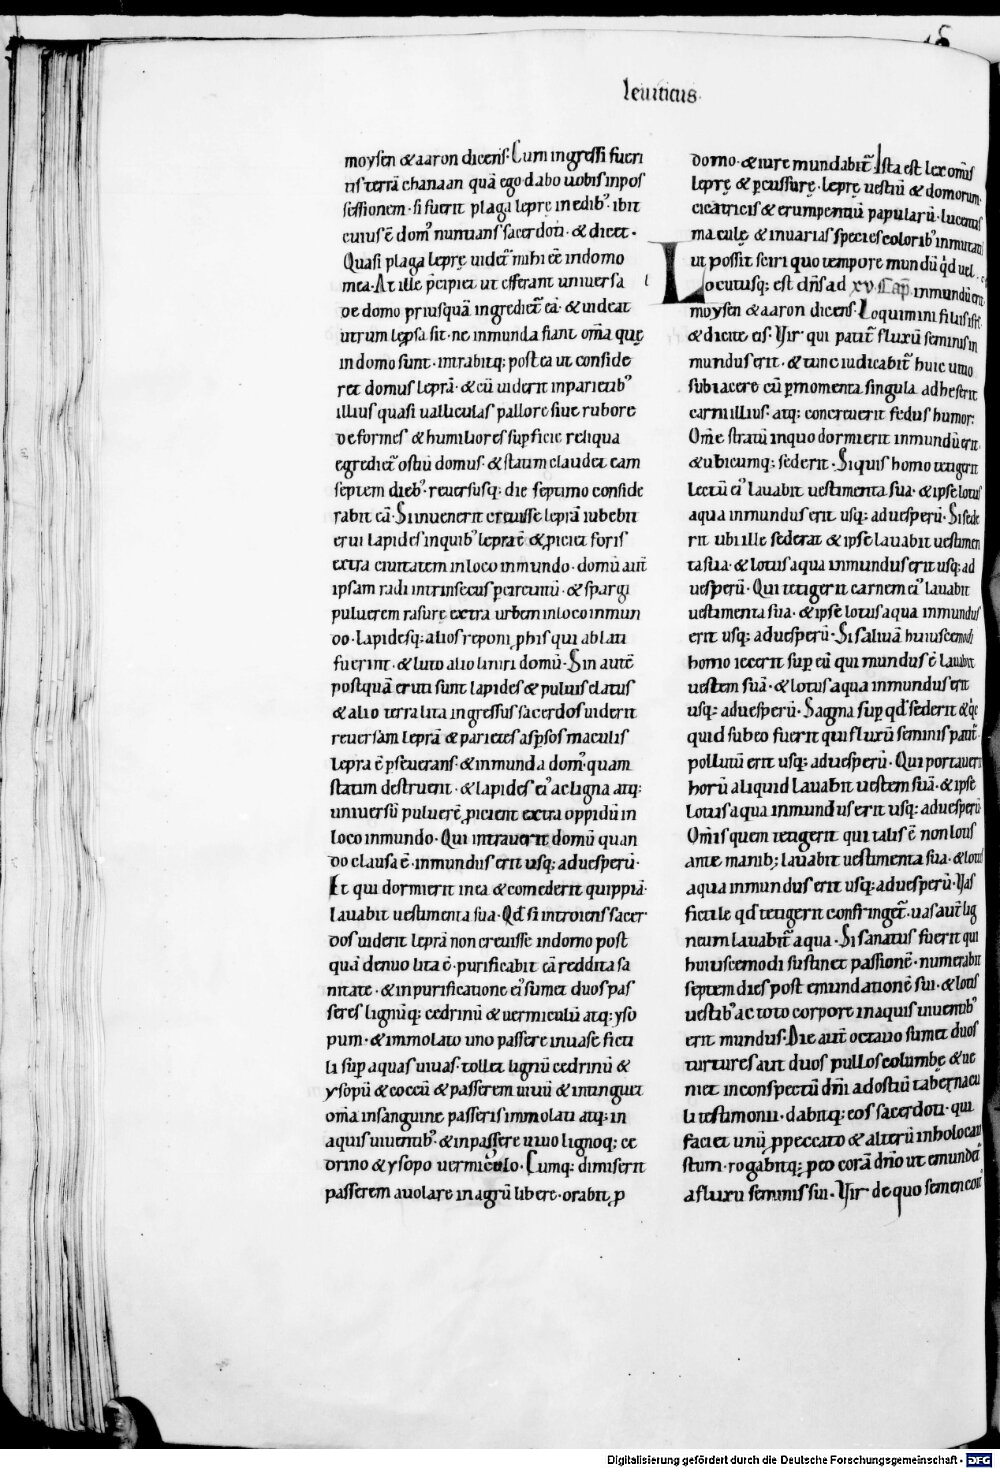 leuiticus.
moysen & aaron dicens. Cum ingressi fueri
tis terrā chanaan quā ego dabo uobis in pos
sessionem. si fuerit plaga leprę in edibꝰ. ibit
cuius ē domꝰ nuntians sacerdoti. & dicet.
Quasi plaga leprę uidet̄ mihi eē in domo
mea. At ille p̄cipiet ut efferant uniuersa
de domo priusquā ingrediet̄ eā. & uideat
utrum lep̄sa sit. ne inmunda fiant om̄a quę
in domo sunt. intrabitq; postea ut conside
ret domus leprā. & cū uiderit in parietibꝰ
illius quasi ualliculas pallore siue rubore
deformes & humiliores sup̄ficie reliqua
egrediet̄ ostiū domus. & statim claudet eam
septem diebꝰ. reuersusq; die septimo conside
rabit eā. Si inuenerit creuisse leprā iubebit
erui lapides in quibꝰ lepra ē & ꝓiciet foris
extra ciuitatem in loco inmundo. domū aūt
ipsam radi intrinsecus ꝑ circuitū. & spargi
puluerem rasurę extra urbem in loco inmun
do. lapidesq; alios reponi ꝓ his qui ablati
fuerint. & luto alio liniri domū. Sin autē
postquā eruti sunt lapides & puluis elatus
& alio terra lita ingressus sacerdos uiderit
reuersam leprā & parietes asꝑsos maculis
lepra ē ꝑseuerans. & inmunda domꝰ. quam
statim destruent. & lapides eiꝰ ac ligna atq;
uniuersū puluerē ꝓicient extra oppidū in
loco inmundo. Qui intrauerit domū quan
do clausa ē. inmundus erit usq; ad uesperū.
Et qui dormierit in ea & comederit quippiā.
lauabit uestimenta sua. Qd̄ si introiens sacer
dos uiderit leprā non creuisse in domo post
quā denuo lita ē. purificabit eā reddita sa
nitate. & in purificatione eiꝰ sumet duos pas
seres lignūq; cedrinū & uermiculū atq; yso
pum. & immolato uno passere in uase ficti
li sup̄ aquas uiuas. tollet lignū cedrinū &
ysopū & coccū & passerem uiuū & intinguet
om̄a in sanguine passeris immolati atq; in
aquis uiuentibꝰ. & in passere uiuo lignoq; ce
drino & ysopo uermiculo. Cumq; dimiserit
passerem auolare in agrū libere. orabit ꝓ
domo. & iure mundabit̄. Ista est lex om̄is
leprę & ꝑcussurę. leprę uestiū & domorum.
cicatricis & erumpentiū papularū. lucentis
maculę & in uarias species coloribꝰ inmutati
ut possit sciri quo tempore mundū qd̄ uel
Locutusq; est dn̄s ad xv Cap̄ inmundū erit.
moysen & aaron dicens. Loquimini filiis isrl̄
& dicite eis. Vir qui patit̄ fluxū seminis in
mundus erit. & tunc iudicabit̄ huic uitio
subiacere cū ꝑ momenta singula adheserit
carni illius. atq; concreuerit fedus humor.
Om̄e stratū in quo dormierit inmundū erit.
& ubicumq; sederit. Si quis homo tetigerit
lectū eiꝰ lauabit uestimenta sua. & ipse lotus
aqua inmundus erit usq; ad uesperū. Si sede
rit ubi ille sederat & ipse lauabit uestimen
ta sua. & lotus aqua inmundus erit usq; ad
uesperū. Qui tetigerit carnem eiꝰ lauabit
uestimenta sua. & ipse lotus aqua inmundus
erit usq; ad uesperū. Si saliuā huiuscemodi
homo iecerit sup̄ eū qui mundus ē lauabit
uestem suā. & lotus aqua inmundus erit
usq; ad uesperū. Sagma sup̄ qd̄ sederit & qc̄
quid sub eo fuerit qui fluxū seminis patit̄.
pollutū erit usq; ad uesperū. Qui portauerit
horū aliquid lauabit uestem suā. & ipse
lotus aqua inmundus erit usq; ad uesperū.
Om̄is quem tetigerit qui talis ē non lotis
ante manibꝰ; lauabit uestimenta sua. & lotus
aqua inmundus erit usq; ad uesperū. Vas
fictile qd̄ tetigerit confringet̄. uas aut̄ lig
neum lauabit̄ aqua. Si sanatus fuerit qui
huiuscemodi sustinet passionē. numerabit
septem dies post emundationē sui. & lotis
uestibꝰ ac toto corpore in aquis uiuentibꝰ
erit mundus. Die aut̄ octauo sumet duos
turtures aut duos pullos columbę & ue
niet in conspectū dn̄i ad ostiū tabernacu
li testimonii. dabitq; eos sacerdoti. qui
faciet unū ꝓ peccato & alterū in holocau
stum. rogabitq; ꝓ eo corā dn̄o ut emundet̄
a fluxu seminis sui. Vir de quo semen coit
Digitalisierung gefördert durch die Deutsche Forschungsgemeinschaft - DFG